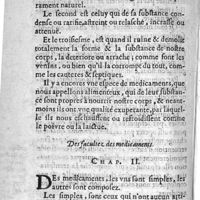 rament naturel.
Le second est celuy qui de sa substance con-
dense ou rarifie, astreint ou relasche, incrasse ou
attenuë.
Et le troisiesme, est quand il ruine & demolit
totalement la forme & la substance de nostre
corps, la deterore ou arrache, comme les
, ou bien qu'il la corrompt du tout, comme
les cauteres & septiques.
Il y a encores vne espece de medicaments, que
nous appellons alimenteux, qui de leur substan-
ce sont propres à nourrir nostre corps, & neant-
moins ont vne qualité exuperante, par laquel-
le ils nous eschauffent ou refroidissent comme
le poivre ou la laictue.
Des facultez, des medicaments.
CHAP. II.
DEs medicaments, les vns sont simples, les
autres sont composez.
Les simples, sont ceux qui n'ont aucun arti-